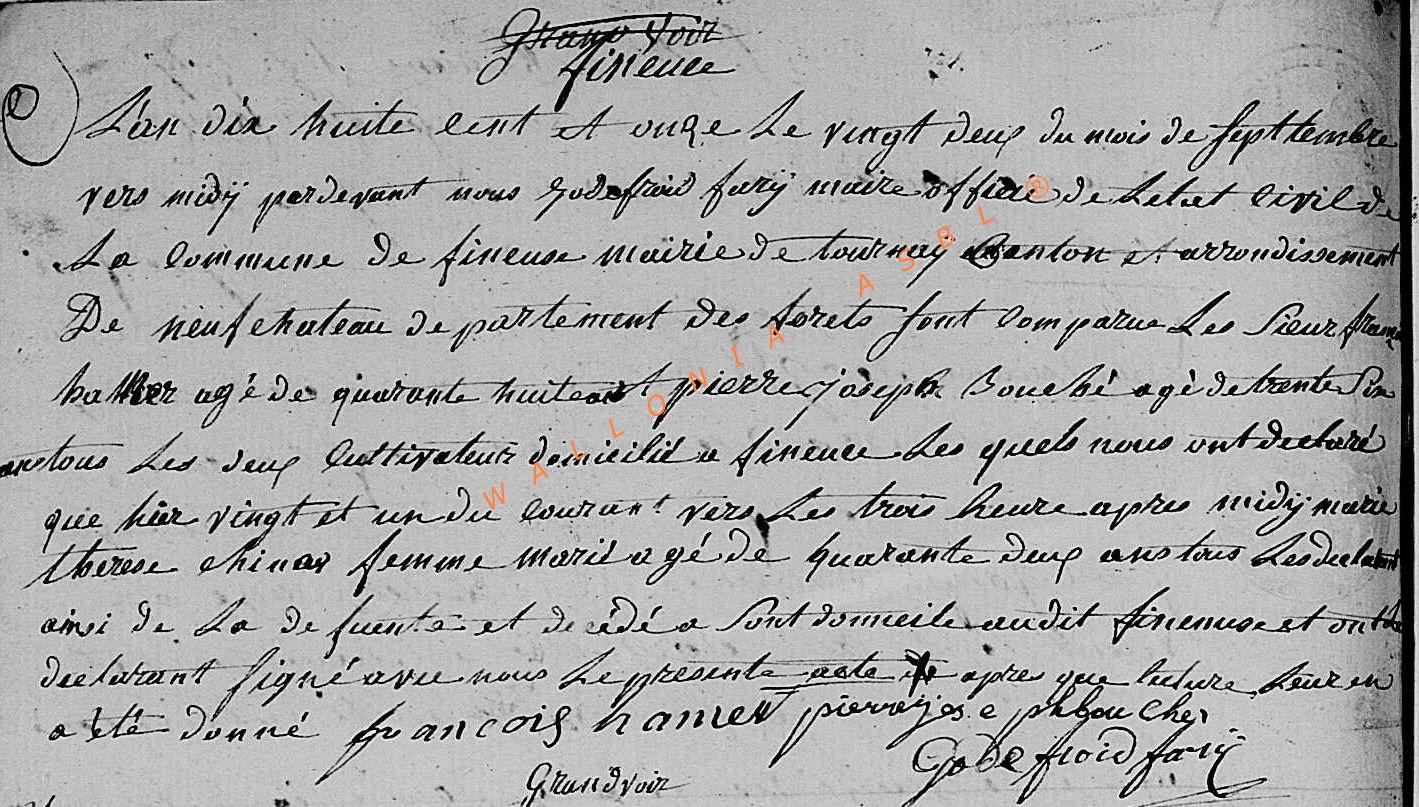 Grand Voir
fineuce
L'an dix huite cent et onze Le vingt deux du mois de Septtembre
vers midÿ pardevant nous Godefroid farÿ maire officié de Letat Civil de
La Commune de fineuse mairie de tournaÿ Canton et arrondissement
De neufchateau departement des forets sont comparue Les Sieur
agé de quarante huite ans et pierre joseph Bouché agé de trente Six
ans tous Les deux Cultivateur domicilié a fineuce Les quels nous ont declaré
que hier vingt et un du Courant vers Les trois heure apres midÿ marie
therese femme marié agé de quarante deux ans tous Les declarant
ami de La defuente et decédé a Sont domicile audit fineuse et ont
declarant Signé avec nous Le presente acte apres que lecture Leur en
a été donné françois hamer pierre
Godefroid farÿ
Grandvoir
WALLONIA ASBL ®